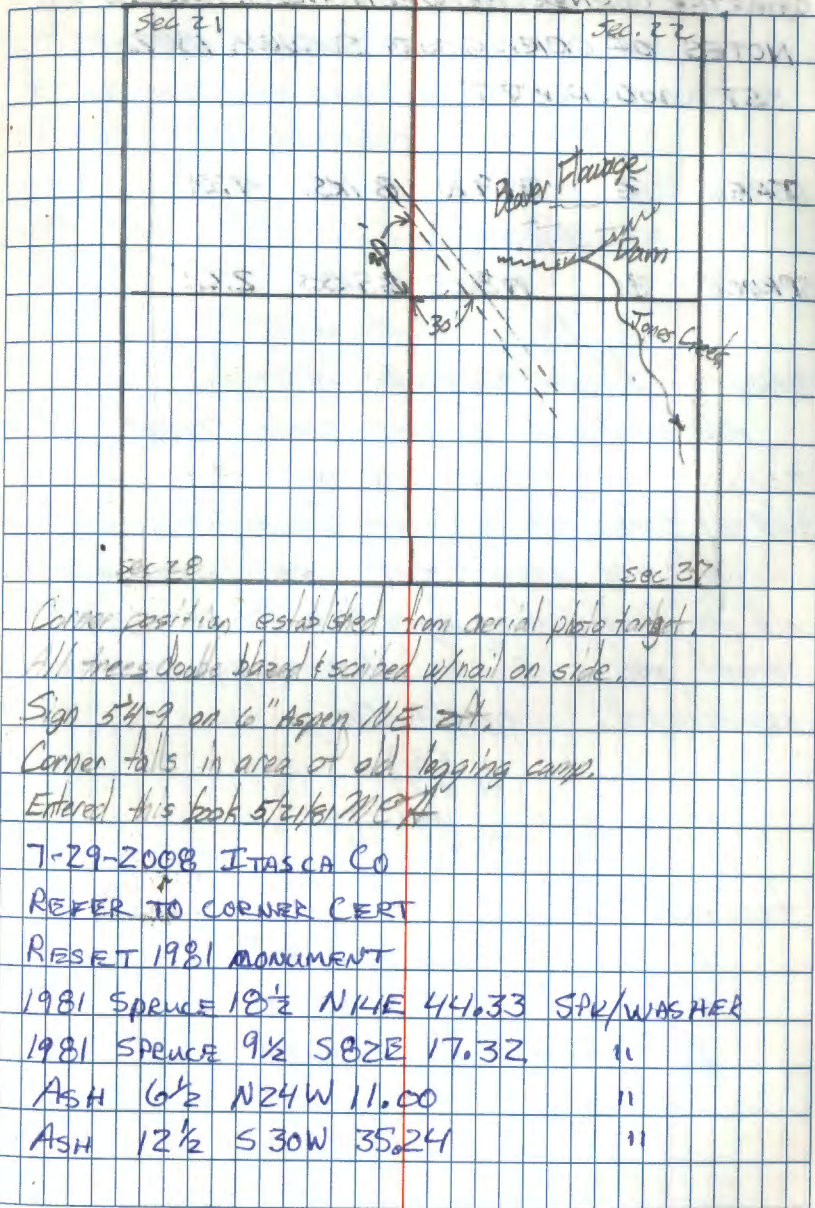 Sec 21 Sec. 22
Beaver Flowage
Dam
30'
30'
Jones Creek
Sec 28 Sec 27
Corner position established from aerial photo target.
All trees double blazed & scribed w/nail on side.
Sign 54-9 on 6" Aspen NE 2ft.
Corner falls in area of old logging camp.
Entered this book 5/21/81
7-29-2008 ITASCA CO
REFER TO CORNER CERT
RESET 1981 MONUMENT
1981 SPRUCE 18½ N14E 44.33 SPK/WASHER
1981 SPRUCE 9½ S82E 17.32 "
ASH 6½ N24W 11.00 "
ASH 12½ S30W 35.24 "